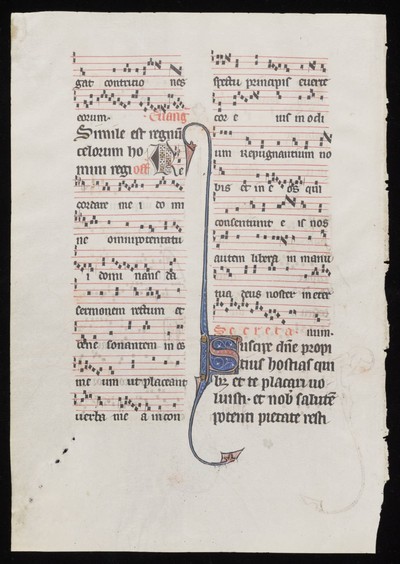 gat contricio nes
eorum. Euang
Simile est regnū
celorum ho
mini regi off
cordare me i do mi
ne omnipotentatu
i domi nans da
sermonem rectum et
bene sonantem in os
me um ut placeant
uerba me a in con
spectu principis euerte
cor e ius in odi
um repugnantium no
bis et in e os qui
consentiunt e is nos
autem libera in manu
tua deus noster in eter
Secreta num.
Suscipe dn̄e propi
tius hostias qui
bȝ et te placari uo
luisti. et nob̄ salutē
potenti pietate resti